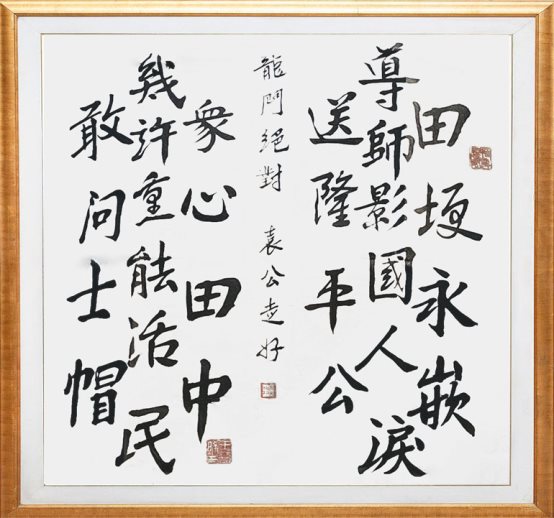 田埂永嵌
導師影國人淚
送隆平公
龍門絕對 袁公走好
衆心田中
幾許重能活民
敢問士帽